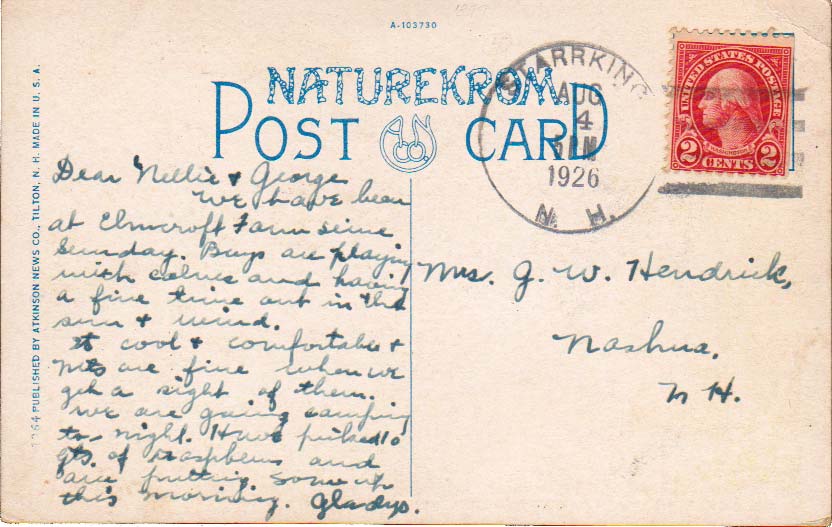 A-103730
NATUREKROM
POST CARD
A N CO.
STARRKING
AUG
4
1926
N. H.
UNITED STATES POSTAGE
WASHINGTON
2 CENTS 2
1264 PUBLISHED BY ATKINSON NEWS CO., TILTON, N. H. MADE IN U. S. A.
Dear Nellie & George
We have been
at Elmcroft Farm seine
Sunday. Boys are playing
with and having
a fine time out in the
sun & wind.
It cool & comfortable &
mts are fine when we
get a sight of them.
We are going camping
to-night. Have picked 10
qts. of raspberies and
are putting some up
this morning. Gladys.
Mrs. G. W. Hendrick,
Nashua,
N H.